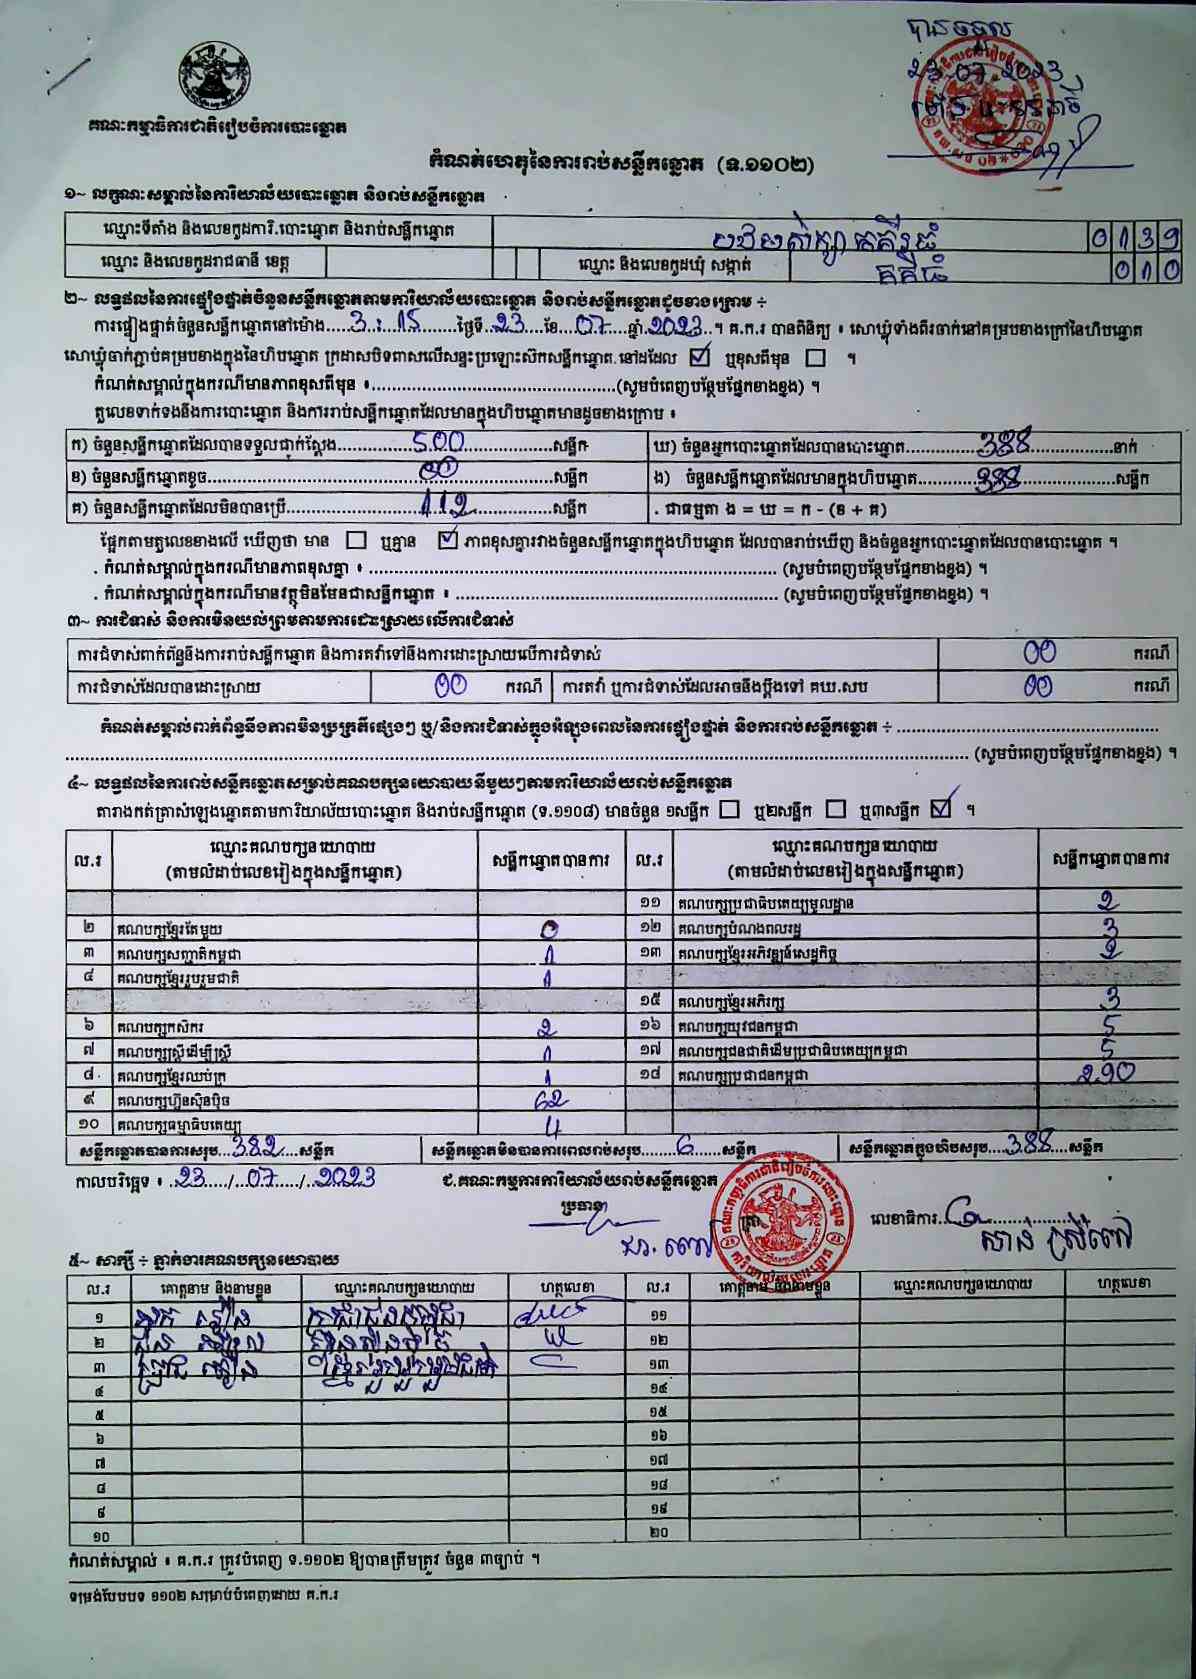 បានទទួល
23-07-2023
គណៈកម្មាធិការជាតិរៀបចំការបោះឆ្នោត
កំណត់ហេតុនៃការរាប់សន្លឹកឆ្នោត (ទ.១១០២)
១~ លក្ខណៈសម្គាល់នៃការិយាល័យបោះឆ្នោត និងរាប់សន្លឹកឆ្នោត
ឈ្មោះទីតាំង និងលេខកូដការិ.បោះឆ្នោត និងរាប់សន្លឹកឆ្នោត 0139
ឈ្មោះ និងលេខកូដរាជធានី ខេត្ត ឈ្មោះ និងលេខកូដឃុំ សង្កាត់ គគីរធំ 010
២~ លទ្ធផលនៃការផ្ទៀងផ្ទាត់ចំនួនសន្លឹកឆ្នោតតាមការិយាល័យបោះឆ្នោត និងរាប់សន្លឹកឆ្នោតដូចខាងក្រោម ÷
ការផ្ទៀងផ្ទាត់ចំនួនសន្លឹកឆ្នោតនៅម៉ោង 3:15 ថ្ងៃទី 23 ខែ 07 ឆ្នាំ 2023 ។ គ.ក.រ បានពិនិត្យ ៖ សោឃ្លុំទាំងពីរចាក់នៅគម្របខាងក្រៅនៃហិបឆ្នោត
សោឃ្លុំចាក់ភ្ជាប់គម្របខាងក្នុងនៃហិបឆ្នោត ក្រដាសបិទពាសលើសន្ទះប្រឡោះស៊កសន្លឹកឆ្នោត នៅដដែល ☑ ឬខុសពីមុន ☐ ។
កំណត់សម្គាល់ក្នុងករណីមានភាពខុសពីមុន ៖ (សូមបំពេញបន្ថែមផ្នែកខាងខ្នង) ។
តួលេខទាក់ទងនឹងការបោះឆ្នោត និងការរាប់សន្លឹកឆ្នោតដែលមានក្នុងហិបឆ្នោតមានដូចខាងក្រោម ៖
ក) ចំនួនសន្លឹកឆ្នោតដែលបានទទួលជាក់ស្តែង 500 សន្លឹក ឃ) ចំនួនអ្នកបោះឆ្នោតដែលបានបោះឆ្នោត 388 នាក់
ខ) ចំនួនសន្លឹកឆ្នោតខូច 00 សន្លឹក ង) ចំនួនសន្លឹកឆ្នោតដែលមានក្នុងហិបឆ្នោត 388 សន្លឹក
គ) ចំនួនសន្លឹកឆ្នោតដែលមិនបានប្រើ 112 សន្លឹក . ជាធម្មតា ង = ឃ = ក - (ខ + គ)
ផ្អែកតាមតួលេខខាងលើ ឃើញថា មាន ☐ ឬគ្មាន ☑ ភាពខុសគ្នារវាងចំនួនសន្លឹកឆ្នោតក្នុងហិបឆ្នោត ដែលបានរាប់ឃើញ និងចំនួនអ្នកបោះឆ្នោតដែលបានបោះឆ្នោត ។
. កំណត់សម្គាល់ក្នុងករណីមានភាពខុសគ្នា ៖ (សូមបំពេញបន្ថែមផ្នែកខាងខ្នង) ។
. កំណត់សម្គាល់ក្នុងករណីមានវត្ថុមិនមែនជាសន្លឹកឆ្នោត ៖ (សូមបំពេញបន្ថែមផ្នែកខាងខ្នង) ។
៣~ ការជំទាស់ និងការមិនយល់ព្រមតាមការដោះស្រាយលើការជំទាស់
ការជំទាស់ពាក់ព័ន្ធនឹងការរាប់សន្លឹកឆ្នោត និងការតវ៉ាទៅនឹងការដោះស្រាយលើការជំទាស់ 00 ករណី
ការជំទាស់ដែលបានដោះស្រាយ 00 ករណី ការតវ៉ា ឬការជំទាស់ដែលអាចនឹងប្តឹងទៅ គឃ.សប 00 ករណី
កំណត់សម្គាល់ពាក់ព័ន្ធនឹងភាពមិនប្រក្រតីផ្សេងៗ ឬ/និងការជំទាស់ក្នុងអំឡុងពេលនៃការផ្ទៀងផ្ទាត់ និងការរាប់សន្លឹកឆ្នោត ÷
(សូមបំពេញបន្ថែមផ្នែកខាងខ្នង) ។
៤~ លទ្ធផលនៃការរាប់សន្លឹកឆ្នោតសម្រាប់គណបក្សនយោបាយនីមួយៗតាមការិយាល័យរាប់សន្លឹកឆ្នោត
តារាងកត់ត្រាសំឡេងឆ្នោតតាមការិយាល័យបោះឆ្នោត និងរាប់សន្លឹកឆ្នោត (ទ.១១០៨) មានចំនួន ១សន្លឹក ☐ ឬ២សន្លឹក ☐ ឬ៣សន្លឹក ☑ ។
ល.រ ឈ្មោះគណបក្សនយោបាយ (តាមលំដាប់លេខរៀងក្នុងសន្លឹកឆ្នោត) សន្លឹកឆ្នោតបានការ ល.រ ឈ្មោះគណបក្សនយោបាយ (តាមលំដាប់លេខរៀងក្នុងសន្លឹកឆ្នោត) សន្លឹកឆ្នោតបានការ
១១ គណបក្សប្រជាធិបតេយ្យមូលដ្ឋាន 2
២ គណបក្សខ្មែរតែមួយ 0 ១២ គណបក្សបំណងពលរដ្ឋ 3
៣ គណបក្សសញ្ជាតិកម្ពុជា 1 ១៣ គណបក្សខ្មែរអភិវឌ្ឍន៍សេដ្ឋកិច្ច 2
៤ គណបក្សខ្មែររួបរួមជាតិ 1
១៥ គណបក្សខ្មែរអភិរក្ស 3
៦ គណបក្សកសិករ 2 ១៦ គណបក្សយុវជនកម្ពុជា 5
៧ គណបក្សស្ត្រីដើម្បីស្ត្រី 1 ១៧ គណបក្សជនជាតិដើមប្រជាធិបតេយ្យកម្ពុជា 5
៨ គណបក្សខ្មែរឈប់ក្រ 1 ១៨ គណបក្សប្រជាជនកម្ពុជា 290
៩ គណបក្សហ៊្វុនស៊ិនប៉ិច 62
១០ គណបក្សធម្មាធិបតេយ្យ 4
សន្លឹកឆ្នោតបានការសរុប 382 សន្លឹក សន្លឹកឆ្នោតមិនបានការពេលរាប់សរុប 6 សន្លឹក សន្លឹកឆ្នោតក្នុងហិបសរុប 388 សន្លឹក
កាលបរិច្ឆេទ ៖ 23/07/2023 ជ.គណៈកម្មការការិយាល័យរាប់សន្លឹកឆ្នោត
ប្រធាន លេខាធិការ
សាន់ ស្រីពៅ
៥~ សាក្សី ÷ ភ្នាក់ងារគណបក្សនយោបាយ
ល.រ គោត្តនាម និងនាមខ្លួន ឈ្មោះគណបក្សនយោបាយ ហត្ថលេខា ល.រ គោត្តនាម និងនាមខ្លួន ឈ្មោះគណបក្សនយោបាយ ហត្ថលេខា
១ ប្រជាជនកម្ពុជា ១១
២ ១២
៣ ខ្មែររួបរួមជាតិ ១៣
៤ ១៤
៥ ១៥
៦ ១៦
៧ ១៧
៨ ១៨
៩ ១៩
១០ ២០
កំណត់សម្គាល់ ៖ គ.ក.រ ត្រូវបំពេញ ទ.១១០២ ឱ្យបានត្រឹមត្រូវ ចំនួន ៣ច្បាប់ ។
ទម្រង់បែបបទ ១១០២ សម្រាប់បំពេញដោយ គ.ក.រ